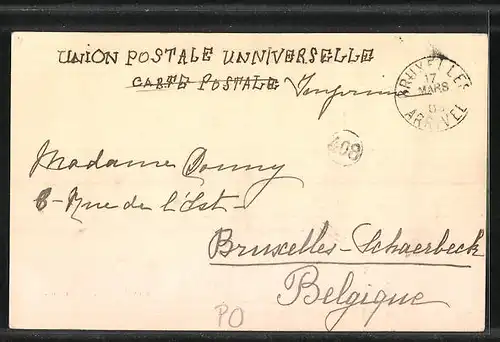 UNION POSTALE UNNIVERSELLE
CARTE POSTALE Imprimé
BRUXELLES
17
MARS
ARRIVEE
408
Madame
Rue de l'Est
Bruxelles-Schaerbeck
Belgique
PO